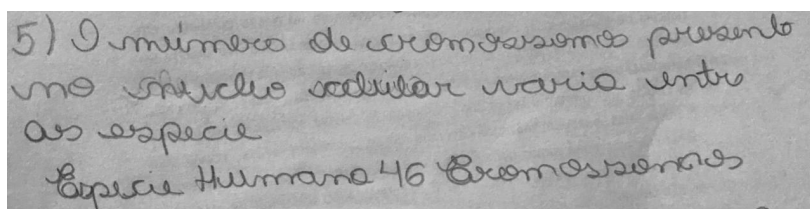 5) O número de cromossomos presente
no núcleo celular varia entre
as especie
Especie Humana 46 Cromossomos